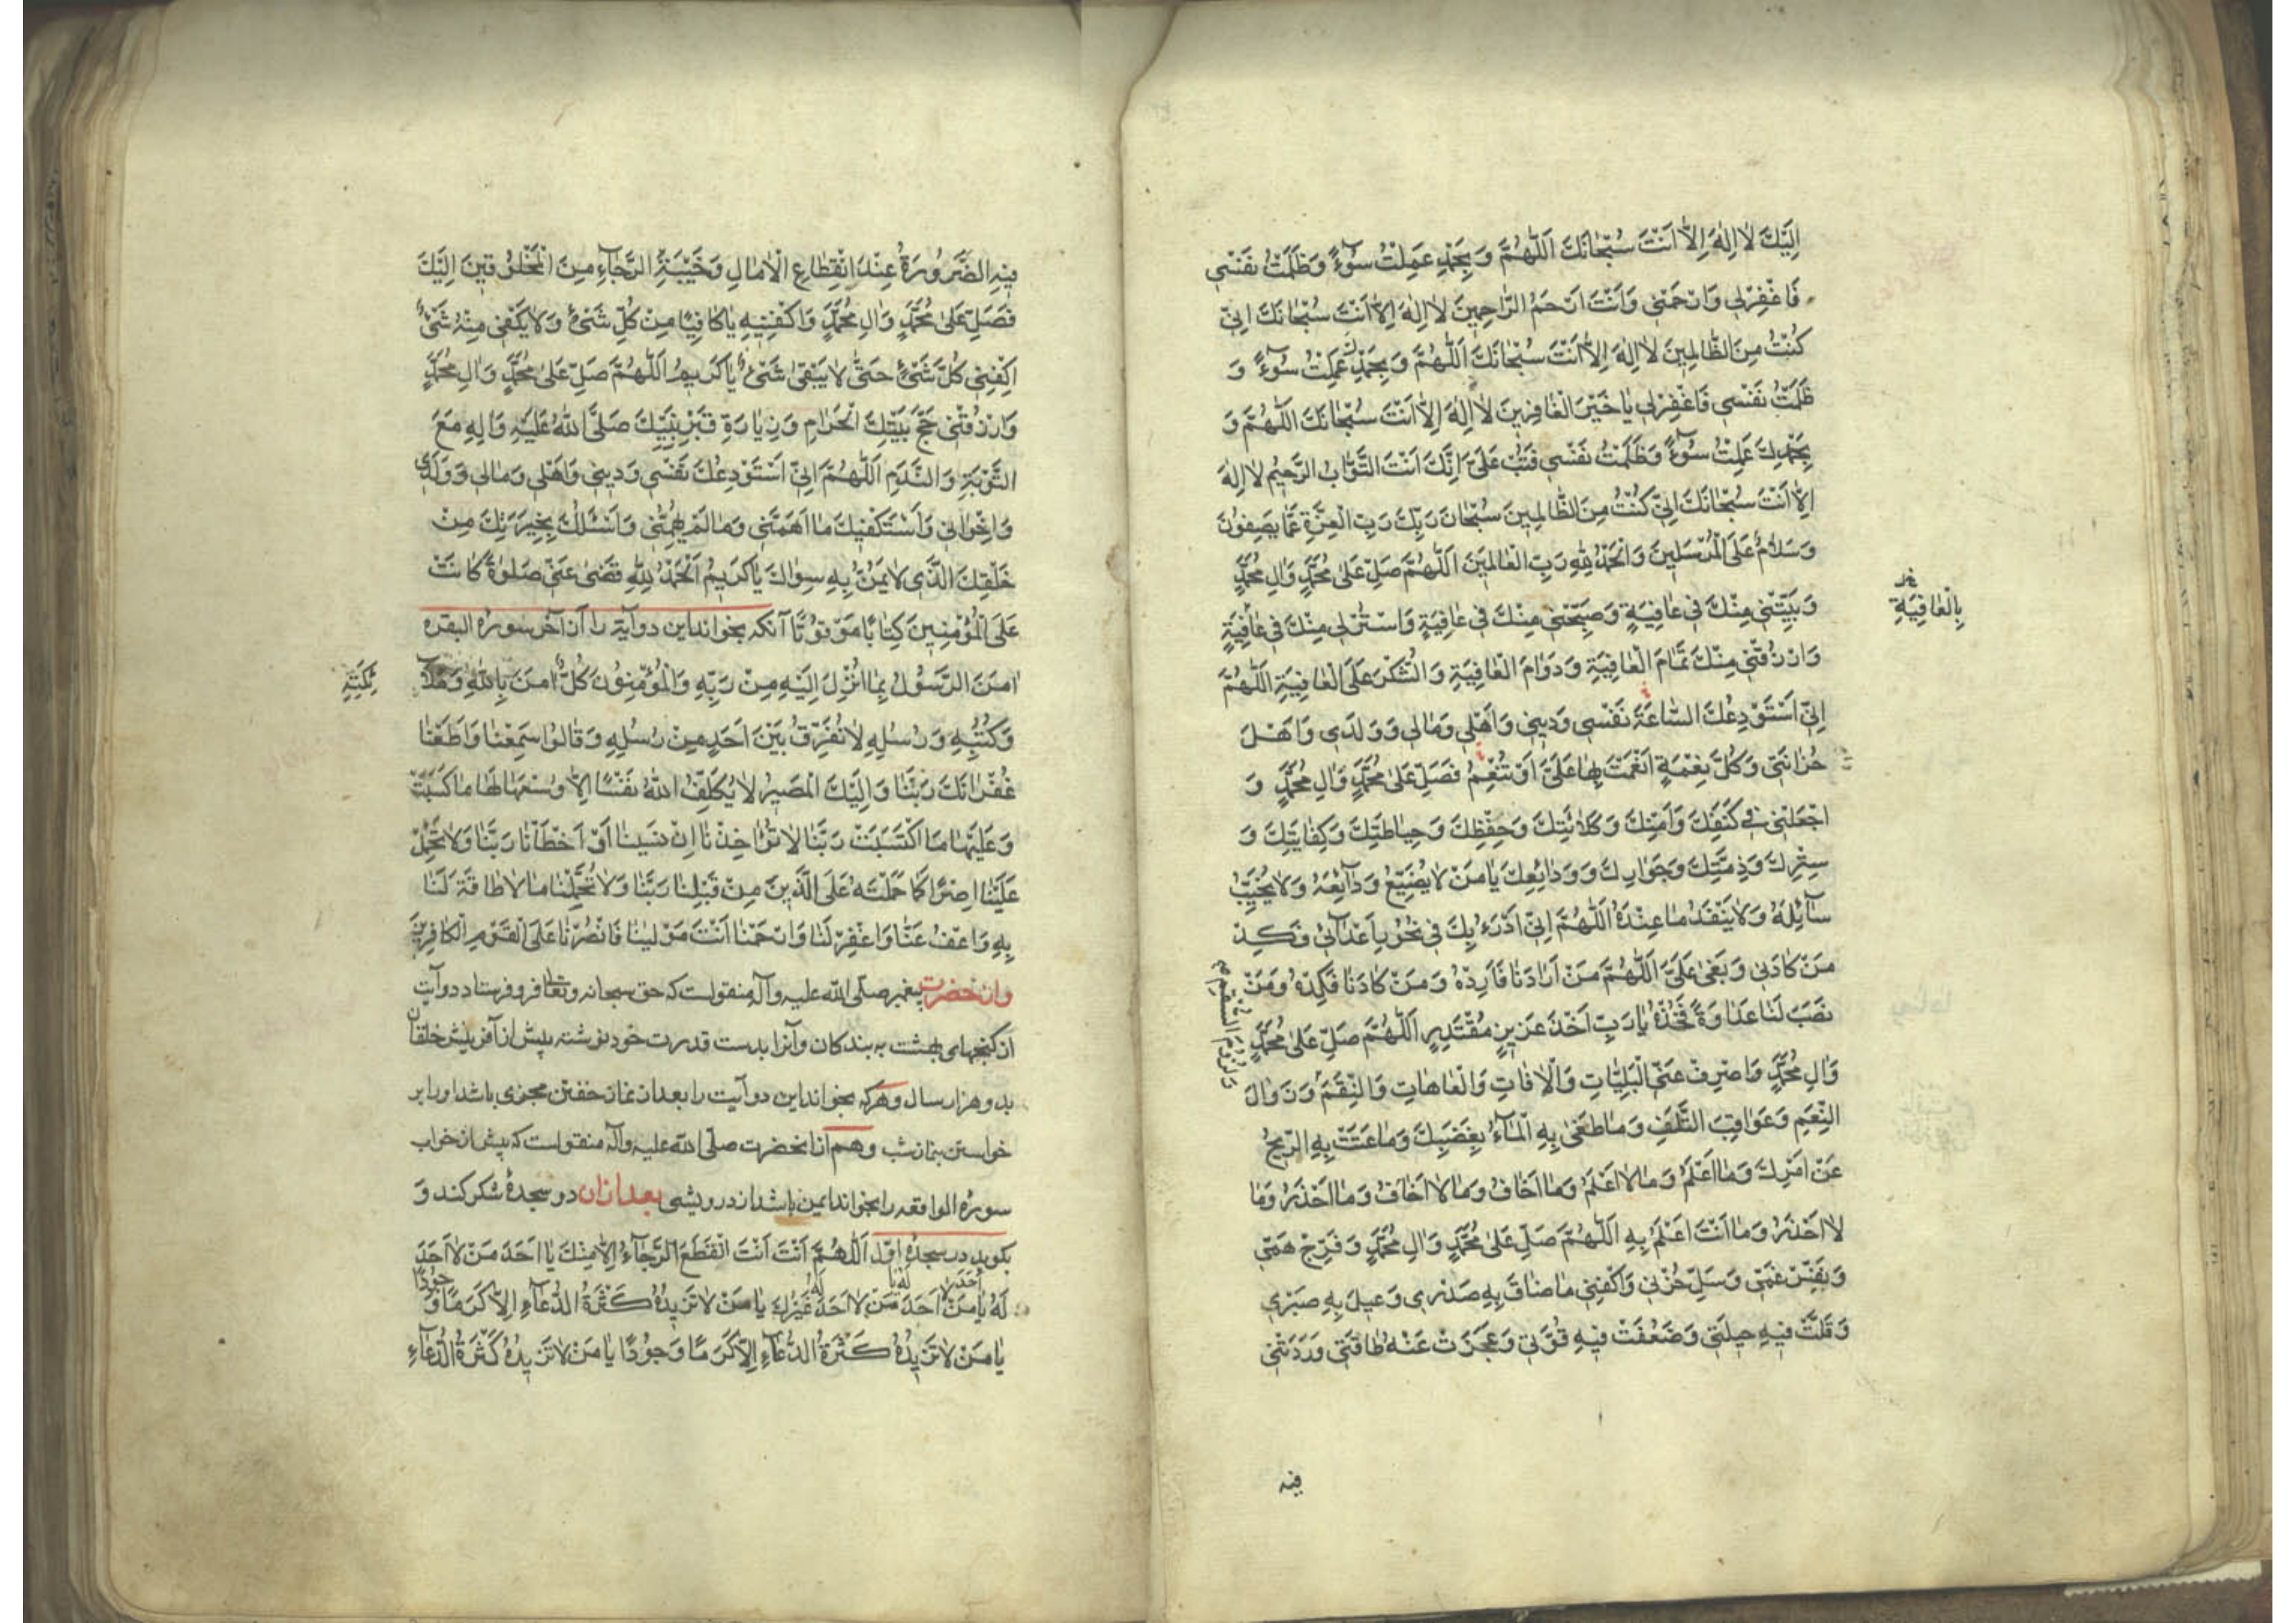 اِلَيْكَ لَا اِلٰهَ اِلَّا اَنْتَ سُبْحَانَكَ اَللّٰهُمَّ وَ بِحَمْدِكَ عَمِلْتُ سُوٓءً وَظَلَمْتُ نَفْسي
فَاغْفِرْلي وَارْحَمْني وَاَنْتَ اَرْحَمُ الرَّاحِمِينَ لَا اِلٰهَ اِلَّا اَنْتَ سُبْحَانَكَ اِنّي
كُنْتُ مِنَ الظَّالِمِينَ لَا اِلٰهَ اِلَّا اَنْتَ سُبْحَانَكَ اَللّٰهُمَّ وَبِحَمْدِكَ عَمِلْتُ سُوٓءً وَ
ظَلَمْتُ نَفْسي فَاغْفِرْلي يَا خَيْرَ الْغَافِرِينَ لَا اِلٰهَ اِلَّا اَنْتَ سُبْحَانَكَ اَللّٰهُمَّ وَ
بِحَمْدِكَ عَمِلْتُ سُوٓءً وَظَلَمْتُ نَفْسي فَتُبْ عَلَيَّ اِنَّكَ اَنْتَ التَّوَّابُ الرَّحيمُ لَا اِلٰهَ
اِلَّا اَنْتَ سُبْحَانَكَ اِنّي كُنْتُ مِنَ الظَّالِمينَ سُبْحَانَ رَبِّكَ رَبِّ الْعِزَّةِ عَمَّا يَصِفُونَ
وَسَلَامٌ عَلَى الْمُرْسَلينَ وَالْحَمْدُ لِلّٰهِ رَبِّ الْعَالَمينَ اَللّٰهُمَّ صَلِّ عَلٰى مُحَمَّدٍ وَاٰلِ مُحَمَّدٍ
وَبَيِّتْني مِنْكَ في عَافِيَةٍ وَصَبِّحْني مِنْكَ في عَافِيَةٍ وَاسْتُرْني مِنْكَ في عَافِيَةٍ
بِالْعَافِيَةِ
وَارْزُقْني مِنْكَ تَمَامَ الْعَافِيَةِ وَدَوَامَ الْعَافِيَةِ وَالشُّكْرَ عَلَى الْعَافِيَةِ اَللّٰهُمَّ
اِنّي اَسْتَوْدِعُكَ السَّاعَةَ نَفْسي وَديني وَاَهْلي وَمَالي وَوَلَدي وَاَهْلَ
حُزَانَتي وَكُلَّ نِعْمَةٍ اَنْعَمْتَ بِهَا عَلَيَّ اَوْ تُنْعِمُ فَصَلِّ عَلٰى مُحَمَّدٍ وَاٰلِ مُحَمَّدٍ وَ
اجْعَلْني في كَنَفِكَ وَاَمْنِكَ وَكَلَائَتِكَ وَحِفْظِكَ وَحِيَاطَتِكَ وَكِفَايَتِكَ وَ
سِتْرِكَ وَذِمَّتِكَ وَجَوَارِكَ وَوَدَائِعِكَ يَا مَنْ لَا يُضَيِّعُ وَدَآئِعَهُ وَلَا يُخَيِّبُ
سَآئِلَهُ وَلَا يَنْفَدُ مَا عِنْدَهُ اَللّٰهُمَّ اِنّي اَدْرَءُ بِكَ في نُحُورِ اَعْدَائي فَكِدْ
مَنْ كَادَني وَبَغٰى عَلَيَّ اَللّٰهُمَّ مَنْ اَرَادَنَا فَاَرِدْهُ وَمَنْ كَادَنَا فَكِدْهُ وَمَنْ
نَصَبَ لَنَا عَدَاوَةً فَخُذْهُ يَا رَبِّ اَخْذَ عَزيزٍ مُقْتَدِرٍ اَللّٰهُمَّ صَلِّ عَلٰى مُحَمَّدٍ
وَاٰلِ مُحَمَّدٍ وَاصْرِفْ عَنِّي الْبَلِيَّاتِ وَالْاٰفَاتِ وَالْعَاهَاتِ وَالنِّقَمَ وَزَوَالَ
وَلُزُومَ السَّقَمِ
النِّعَمِ وَعَوَاقِبَ التَّلَفِ وَمَا طَغٰى بِهِ الْمَآءُ بِغَضَبِكَ وَمَا عَتَتْ بِهِ الرّيحُ
عَنْ اَمْرِكَ وَمَا اَعْلَمُ وَمَا لَا اَعْلَمُ وَمَا اَخَافُ وَمَا لَا اَخَافُ وَمَا اَحْذَرُ وَمَا
لَا اَحْذَرُ وَمَا اَنْتَ اَعْلَمُ بِهِ اَللّٰهُمَّ صَلِّ عَلٰى مُحَمَّدٍ وَاٰلِ مُحَمَّدٍ وَفَرِّجْ هَمّي
وَنَفِّسْ غَمّي وَسَلِّ حُزْني وَاكْفِني مَا ضَاقَ بِهِ صَدْري وَعيلَ بِهِ صَبْري
وَقَلَّتْ فيهِ حيلَتي وَضَعُفَتْ فيهِ قُوَّتي وَعَجَزَتْ عَنْهُ طَاقَتي وَرَدَّتْني
فيه
فيهِ الضَّرُورَةُ عِنْدَ انْقِطَاعِ الْاٰمَالِ وَخَيْبَةِ الرَّجَآءِ مِنَ الْمَخْلُوقينَ اِلَيْكَ
فَصَلِّ عَلٰى مُحَمَّدٍ وَاٰلِ مُحَمَّدٍ وَاكْفِنيهِ يَا كَافِيًا مِنْ كُلِّ شَيْءٍ وَلَا يَكْفي مِنْهُ شَيْءٌ
اِكْفِني كُلَّ شَيْءٍ حَتّٰى لَا يَبْقٰى شَيْءٌ يَا كَريمُ اَللّٰهُمَّ صَلِّ عَلٰى مُحَمَّدٍ وَاٰلِ مُحَمَّدٍ
وَارْزُقْني حَجَّ بَيْتِكَ الْحَرَامِ وَزِيَارَةَ قَبْرِ نَبِيِّكَ صَلَّى اللّٰهُ عَلَيْهِ وَاٰلِهِ مَعَ
التَّوْبَةِ وَالنَّدَمِ اَللّٰهُمَّ اِنّي اَسْتَوْدِعُكَ نَفْسي وَديني وَاَهْلي وَمَالي وَوَلَدي
وَاِخْوَاني وَاَسْتَكْفيكَ مَا اَهَمَّني وَمَا لَمْ يُهِمَّني وَاَسْئَلُكَ بِخِيَرَتِكَ مِنْ
خَلْقِكَ الَّذي لَا يَمُنُّ بِهِ سِوَاكَ يَا كَريمُ اَلْحَمْدُ لِلّٰهِ قَضٰى عَنّي صَلٰوةً كَانَتْ
عَلَى الْمُؤْمِنينَ كِتَابًا مَوْقُوتًا آنکه بخواند این دو آیة را از آخر سوره البقره
اٰمَنَ الرَّسُولُ بِمَا اُنْزِلَ اِلَيْهِ مِنْ رَبِّهِ وَالْمُؤْمِنُونَ كُلٌّ اٰمَنَ بِاللّٰهِ وَمَلَا
ئِكَتِهِ
وَكُتُبِهِ وَرُسُلِهِ لَا نُفَرِّقُ بَيْنَ اَحَدٍ مِنْ رُسُلِهِ وَقَالُوا سَمِعْنَا وَاَطَعْنَا
غُفْرَانَكَ رَبَّنَا وَاِلَيْكَ الْمَصيرُ لَا يُكَلِّفُ اللّٰهُ نَفْسًا اِلَّا وُسْعَهَا لَهَا مَا كَسَبَتْ
وَعَلَيْهَا مَا اكْتَسَبَتْ رَبَّنَا لَا تُؤَاخِذْنَا اِنْ نَسينَا اَوْ اَخْطَاْنَا رَبَّنَا وَلَا تَحْمِلْ
عَلَيْنَا اِصْرًا كَمَا حَمَلْتَهُ عَلَى الَّذينَ مِنْ قَبْلِنَا رَبَّنَا وَلَا تُحَمِّلْنَا مَا لَا طَاقَةَ لَنَا
بِهِ وَاعْفُ عَنَّا وَاغْفِرْ لَنَا وَارْحَمْنَا اَنْتَ مَوْلٰينَا فَانْصُرْنَا عَلَى الْقَوْمِ الْكَافِرينَ
واز حضرت پیغمبر صلّى اللّه علیه وآله منقولست که حق سبحانه وتعالی فرو فرستاد دو آیت
از گنجهای بهشت به بندگان وآنرا بدست قدرت خود نوشته پیش از آفرینش خلقان
بدو هزار سال وهرکه بخواند این دو آیت را بعد از نماز خفتن مجزی باشد او را بر
خواستن بنماز شب وهم از آنحضرت صلّى اللّه علیه وآله منقولست که پیش از خواب
سوره الواقعه را بخواند ایمن باشد از درویشی بعد از ان دو سجدهٔ شکر کند وَ
بکوید در سجدهٔ اوّل اَللّٰهُمَّ اَنْتَ اَنْتَ انْقَطَعَ الرَّجَآءُ اِلَّا مِنْكَ يَا اَحَدَ مَنْ لَا اَحَدَ
لَهُ يَا مَنْ اَحَدَ مَنْ لَا اَحَدَ غَيْرُكَ يَا مَنْ لَا تَزيدُهُ كَثْرَةُ الدُّعَآءِ اِلَّا كَرَمًا وَ جُودًا
يَا مَنْ لَا تَزيدُهُ كَثْرَةُ الدُّعَآءِ اِلَّا كَرَمًا وَجُودًا يَا مَنْ لَا تَزيدُهُ كَثْرَةُ الدُّعَآءِ